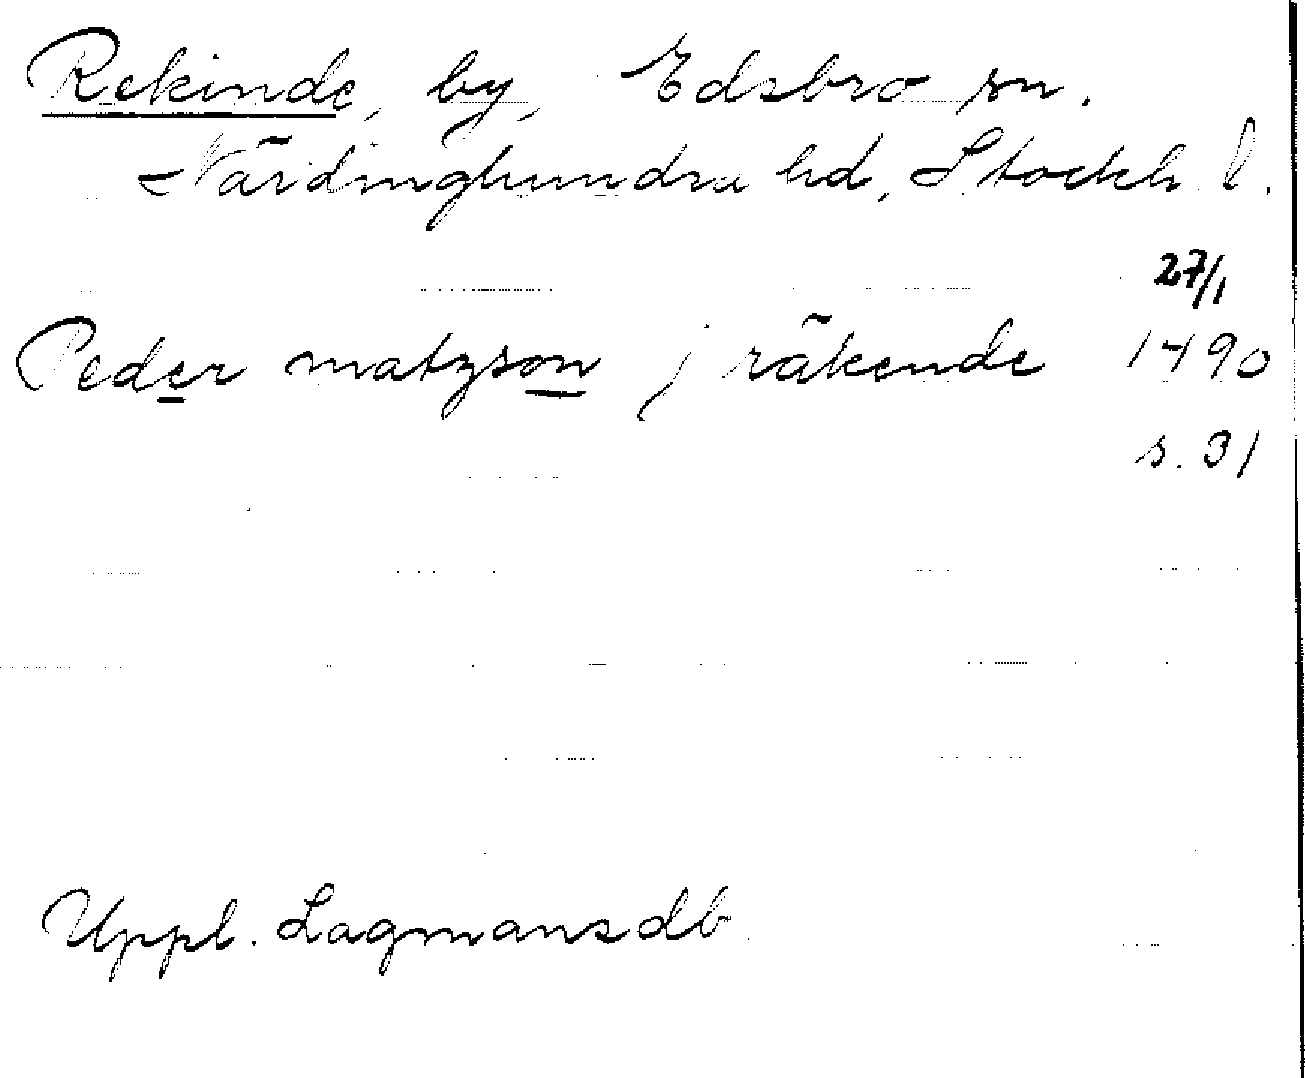 Rekinde, by, Edsbro sn.
Närdinghundra hd, Stockh. l.
27/1
Peder matzson j räkende 1490
s. 31
Uppl. Lagmansdb